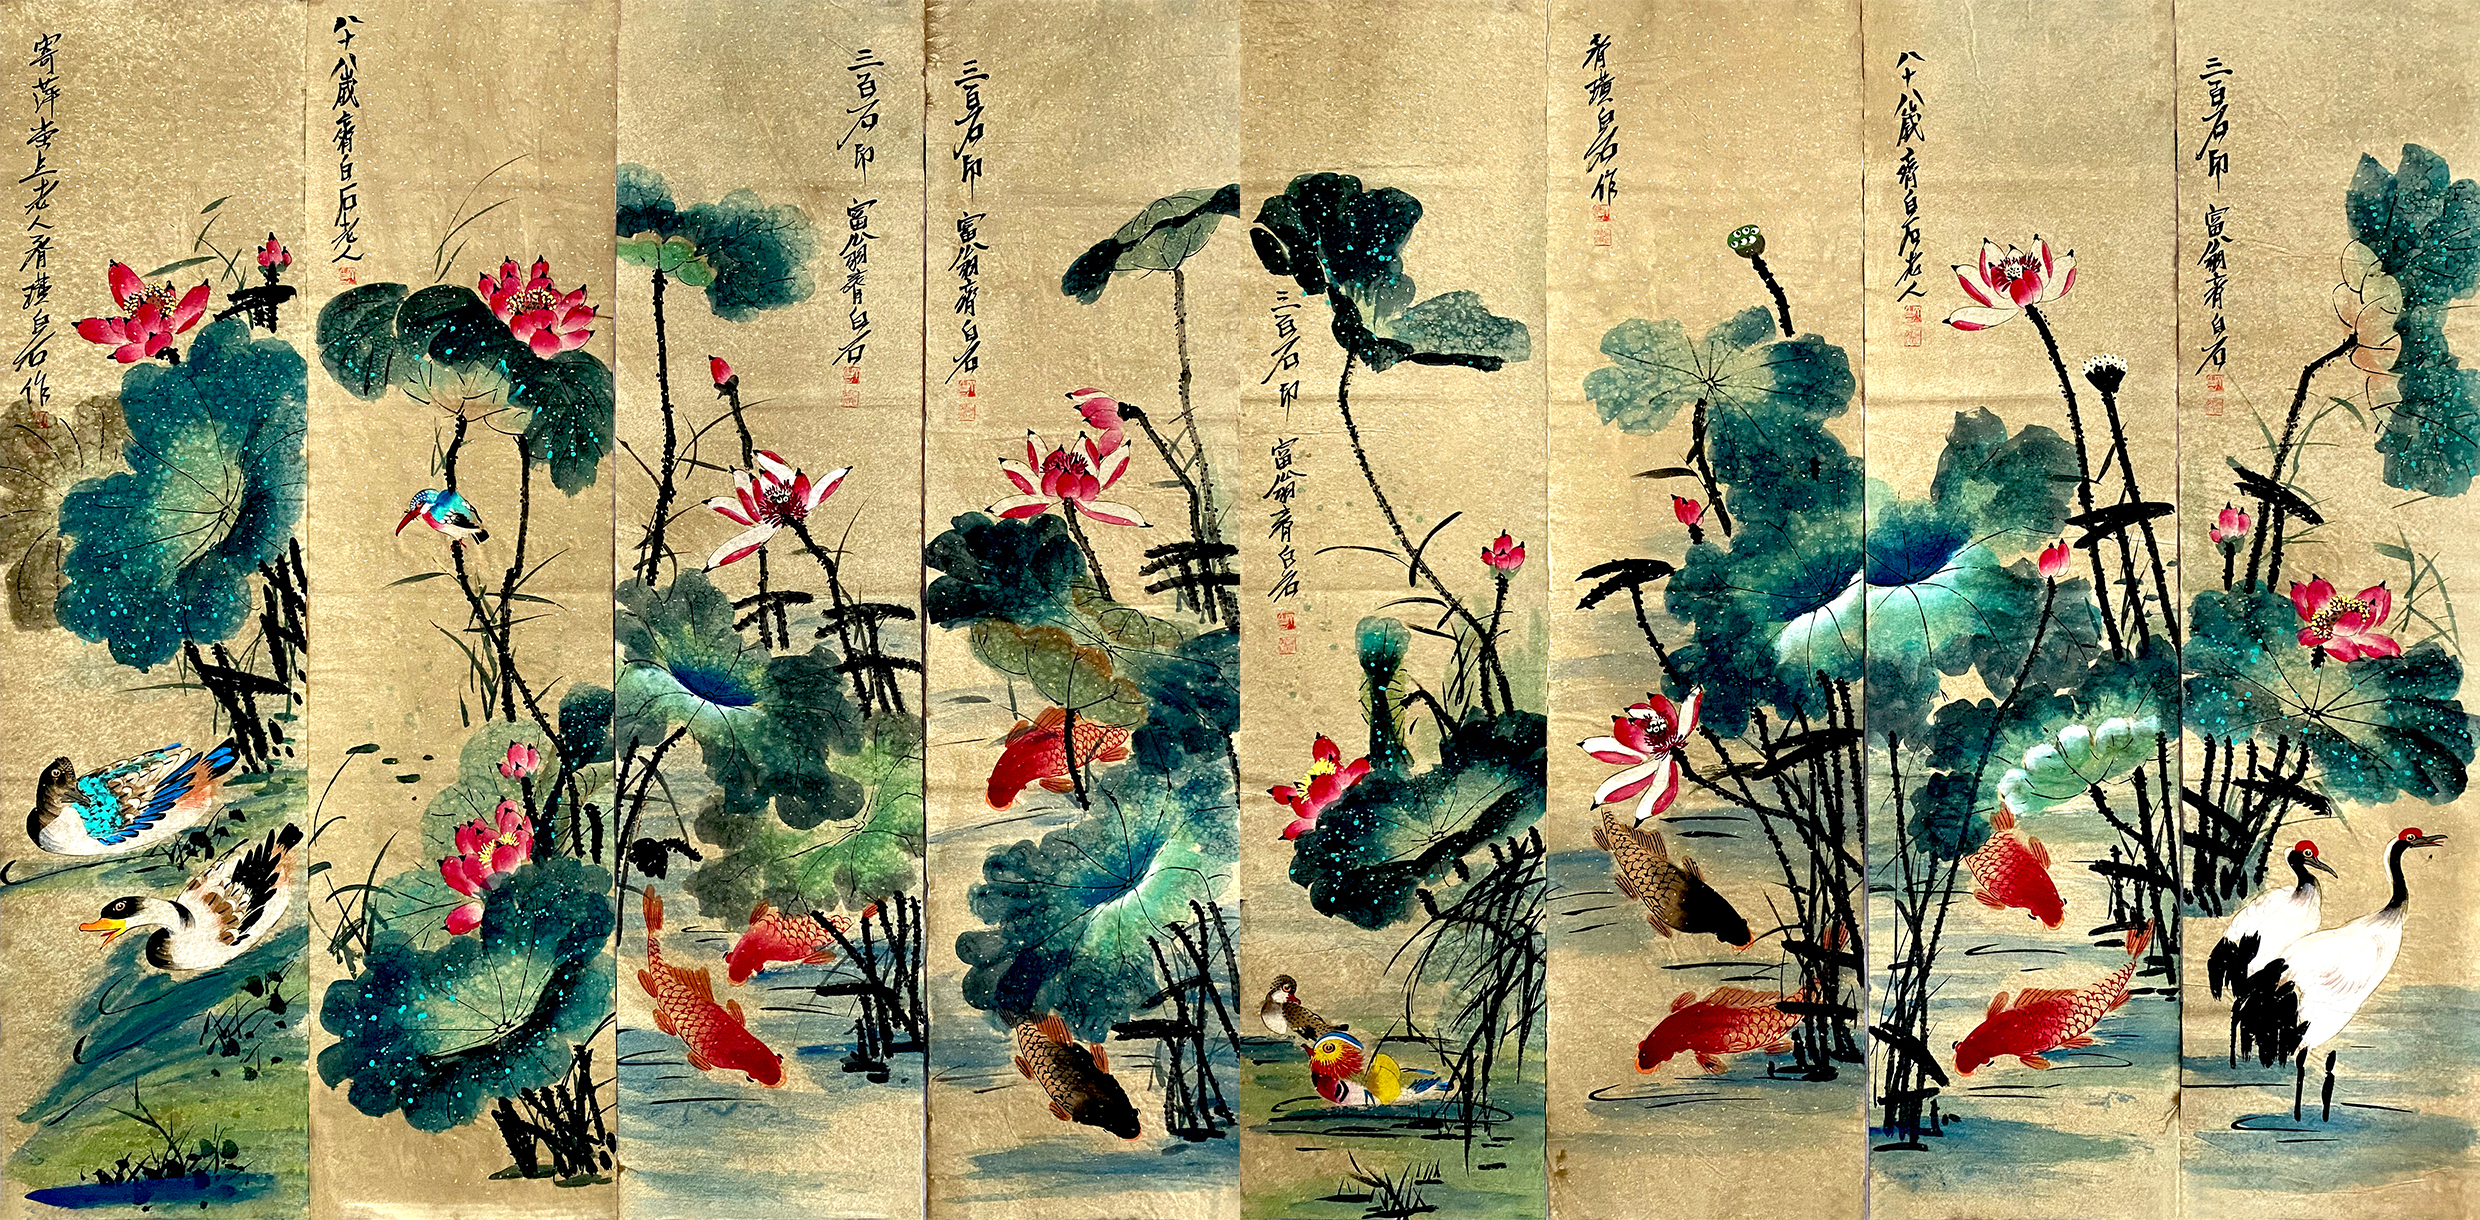 寄萍堂上老人齊璜白石作
八十八歲齊白石老人
三百石印富翁齊白石
三百石印富翁齊白石
三百石印富翁齊白石
齊璜白石作
八十八歲齊白石老人
三百石印富翁齊白石